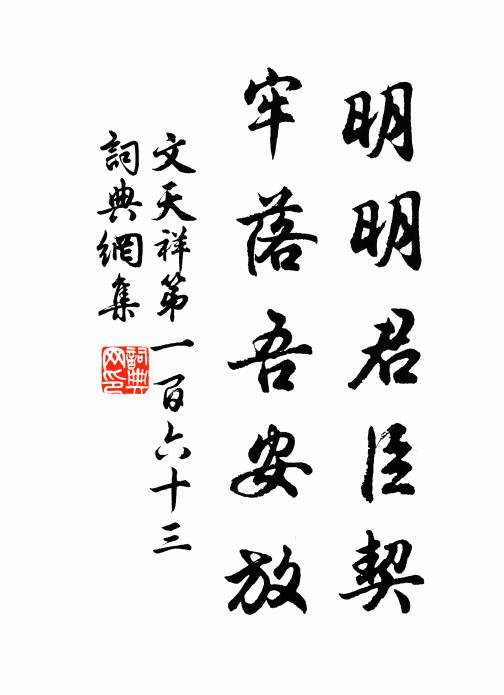 明明君臣契
牢落吾安放
文天祥第一百六十三
詞典網集
詞典網印